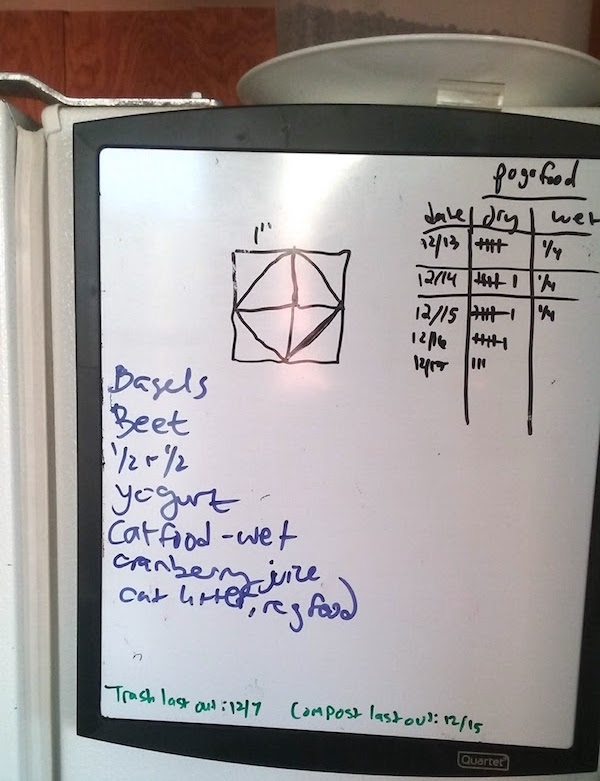 pogofood
date dry wet
12/13 1/4
12/14 1/4
12/15 1/4
12/16
12/17
1"
Bagels
Beet
1/2 + 1/2
yogurt
Catfood - wet
cranberry juice
cat litter, reg food
Trash last out: 12/7 Compost last out: 12/15
Quartet